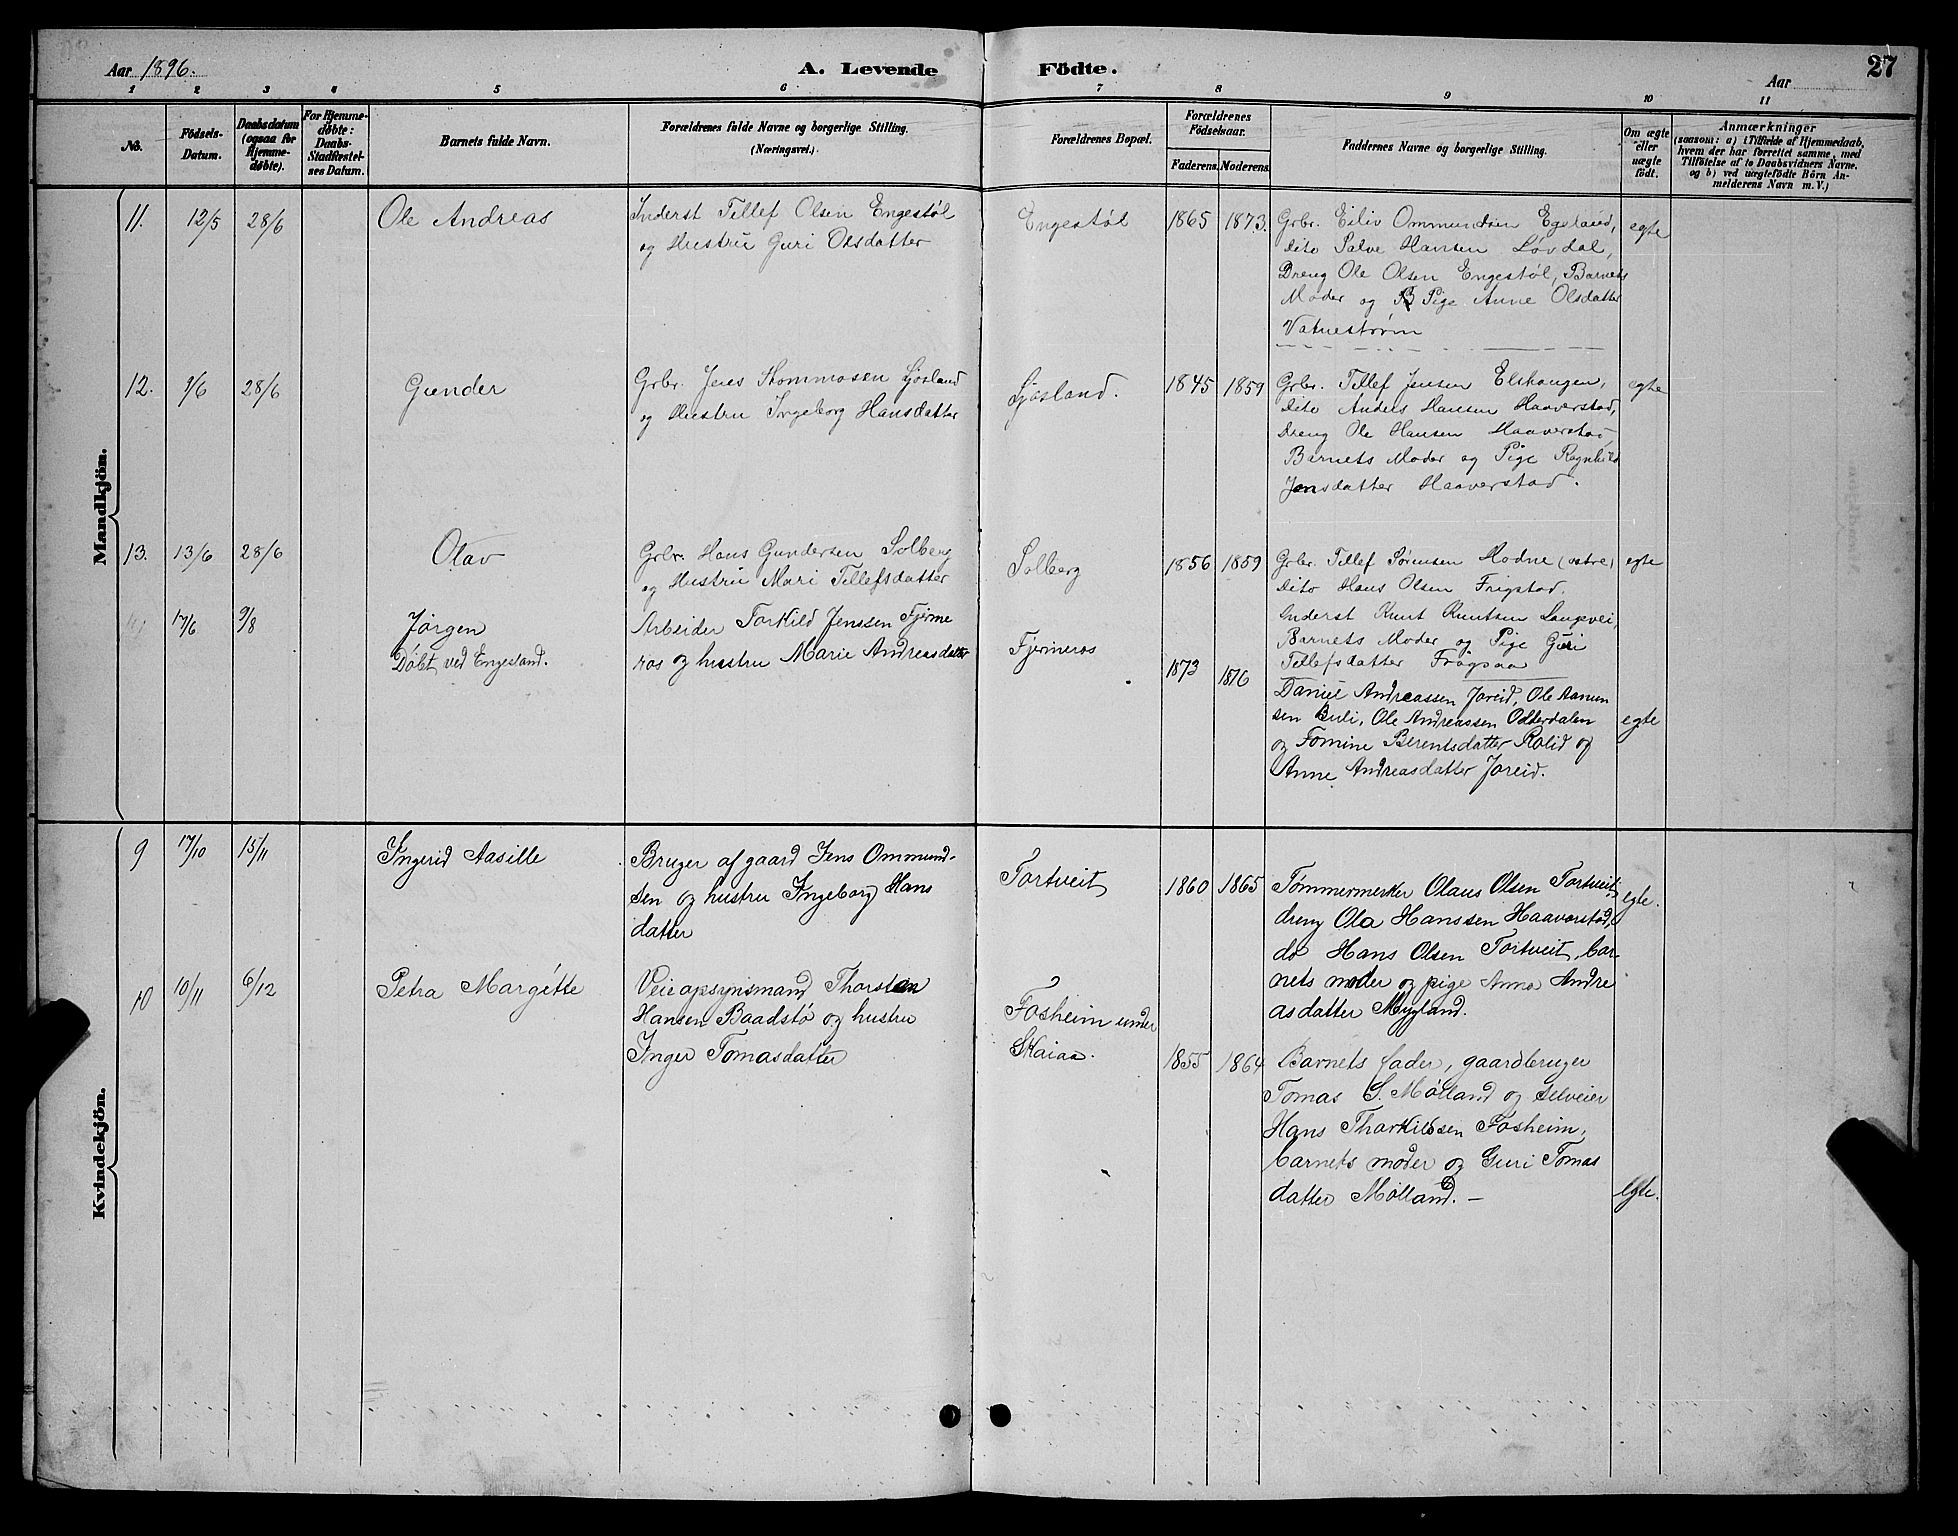 Aar 1896.
A. Levende
Födte.
Aar
27
1 2 3 4 5 6 7 8 9 10 11
No.
Födsels-
Datum.
Daabsdatum
(ogsaa for
Hjemme-
døbte).
For Hjemme-
døbte:
Daabs-
Stadfæstel-
ses Datum.
Barnets fulde Navn.
Forældrenes fulde Navne og borgerlige Stilling.
(Næringsvei.)
Forældrenes Bopæl.
Forældrenes
Födselsaar.
Faderens. Moderens.
Faddernes Navne og borgerlige Stilling.
Om ægte
eller
uægte
født.
Anmærkninger
(saasom: a) i Tilfælde af Hjemmedaab,
hvem der har forrettet samme, med
Tilföielse af to Daabsvidners Navne.
og b) ved uægtefödte Börn An-
melderens Navn m. V.)
Mandkjön.
11. 12/5 28/6
Ole Andreas
Inderst Tellef Olsen Engestøl
og Hustru Guri Olsdatter
Engestøl
1865 1873.
Grbr. Eiliv Ommundsen Egeland,
dito Salve Hansen Løvdal,
Dreng Ole Olsen Engestøl, Barnets
Moder og Pige Anne Olsdatter
Vatnestrøm
egte
12. 9/6 28/6
Gunder
Grbr. Jens Thommasen Ljøsland
og Hustru Ingeborg Hansdatter
Ljøsland.
1845 1859
Grbr. Tellef Jensen Elshaugen,
dito Anders Hansen Haaverstad,
Dreng Ole Hansen Haaverstad,
Barnets Moder og Pige Ragnhild
Jensdatter Haaverstad.
egte
13. 13/6 28/6
Olav
Grbr. Hans Gundersen Solberg
og Hustru Mari Tellefsdatter
Solberg
1856 1859
Grbr. Tellef Sørensen Hodne (østre)
dito Hans Olsen Frigstad.
Inderst Knut Knutsen Laupvei,
Barnets Moder og Pige Guri
Tellefsdatter Frøgsaa
egte
14. 17/6 9/8
Jørgen
Døbt ved Engesland.
Arbeider Torkild Jenssen Fjerme
ros og hustru Marie Andreasdatter
Fjermeros
1873 1876
Daniel Andreassen Joreid, Ole Aanun
sen Buli, Ole Andreassen Odderdalen
og Tomine Berentsdatter Rolid og
Anne Andreasdatter Joreid.
egte
Kvindekjön.
9 17/10 15/11
Ingerid Aasille
Bruger af gaard Jens Ommund-
sen og hustru Ingeborg Hans
datter
Tortveit
1860 1865
Tømmermerker Olaus Olsen Tortveit,
dreng Ola Hanssen Haaverstad,
do Hans Olsen Tortveit, bar-
nets moder og pige Anna Andre
asdatter Mygland.
egte.
10 10/11 6/12
Petra Margitte
Veieopsynsmand Thorsten
Hansen Baadstø og hustru
Inger Tomasdatter
Fosheim under
Skaiaa.
1855 1864
Barnets fader, gaardbruger
Tomas S. Mølland og selveier
Hans Thorkildsen Fosheim,
barnets moder og Guri Tomas
datter Mølland. –
Egte.